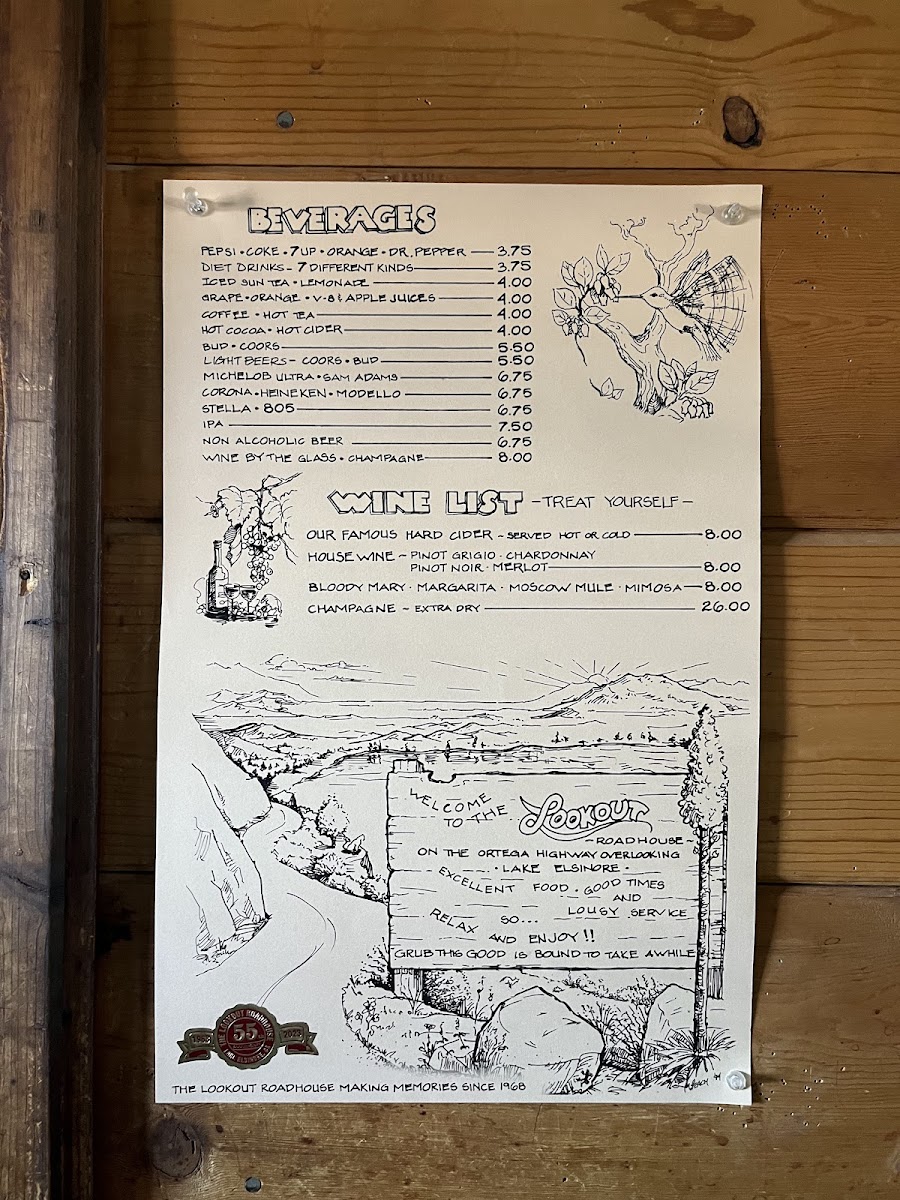 BEVERAGES
PEPSI • COKE • 7UP • ORANGE • DR. PEPPER — 3.75
DIET DRINKS - 7 DIFFERENT KINDS — 3.75
ICED SUN TEA • LEMONADE — 4.00
GRAPE • ORANGE • V-8 & APPLE JUICES — 4.00
COFFEE • HOT TEA — 4.00
HOT COCOA • HOT CIDER — 4.00
BUD • COORS — 5.50
LIGHT BEERS - COORS • BUD — 5.50
MICHELOB ULTRA • SAM ADAMS — 6.75
CORONA • HEINEKEN • MODELLO — 6.75
STELLA • 805 — 6.75
IPA — 7.50
NON ALCOHOLIC BEER — 6.75
WINE BY THE GLASS • CHAMPAGNE — 8.00
WINE LIST - TREAT YOURSELF -
OUR FAMOUS HARD CIDER ~ SERVED HOT OR COLD — 8.00
HOUSE WINE ~ PINOT GRIGIO · CHARDONNAY
PINOT NOIR · MERLOT — 8.00
BLOODY MARY · MARGARITA · MOSCOW MULE · MIMOSA — 8.00
CHAMPAGNE ~ EXTRA DRY — 26.00
WELCOME
TO THE LOOKOUT
- ROADHOUSE -
ON THE ORTEGA HIGHWAY OVERLOOKING
· LAKE ELSINORE ·
EXCELLENT FOOD . GOOD TIMES
AND
LOUSY SERVICE
SO...
RELAX AND ENJOY!!
"GRUB THIS GOOD IS BOUND TO TAKE AWHILE
THE LOOKOUT ROADHOUSE
1968 55 2023
THE LOOKOUT ROADHOUSE MAKING MEMORIES SINCE 1968